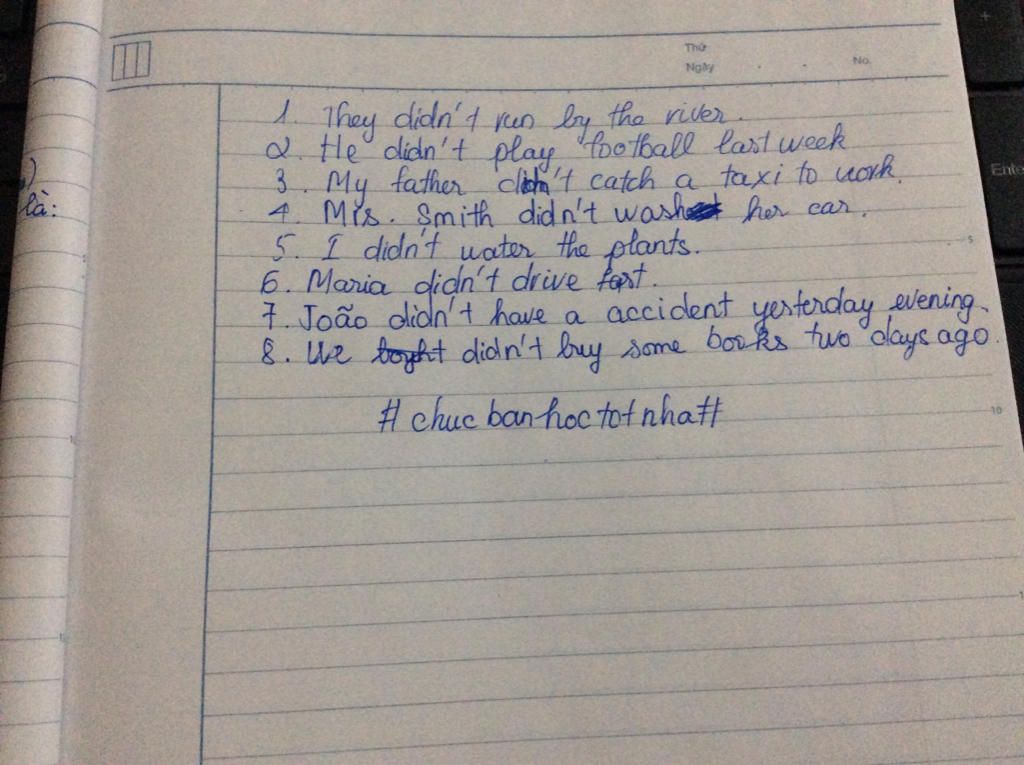 Thứ
Ngày
No.
Enter
là:
1. They didn't run by the river.
2. He didn't play football last week
3. My father didn't catch a taxi to work.
4. Mrs. Smith didn't wash her car.
5. I didn't water the plants.
6. Maria didn't drive fast.
7. João didn't have a accident yesterday evening.
8. We bought didn't buy some books two days ago.
5
# chuc ban hoc tot nha #
10